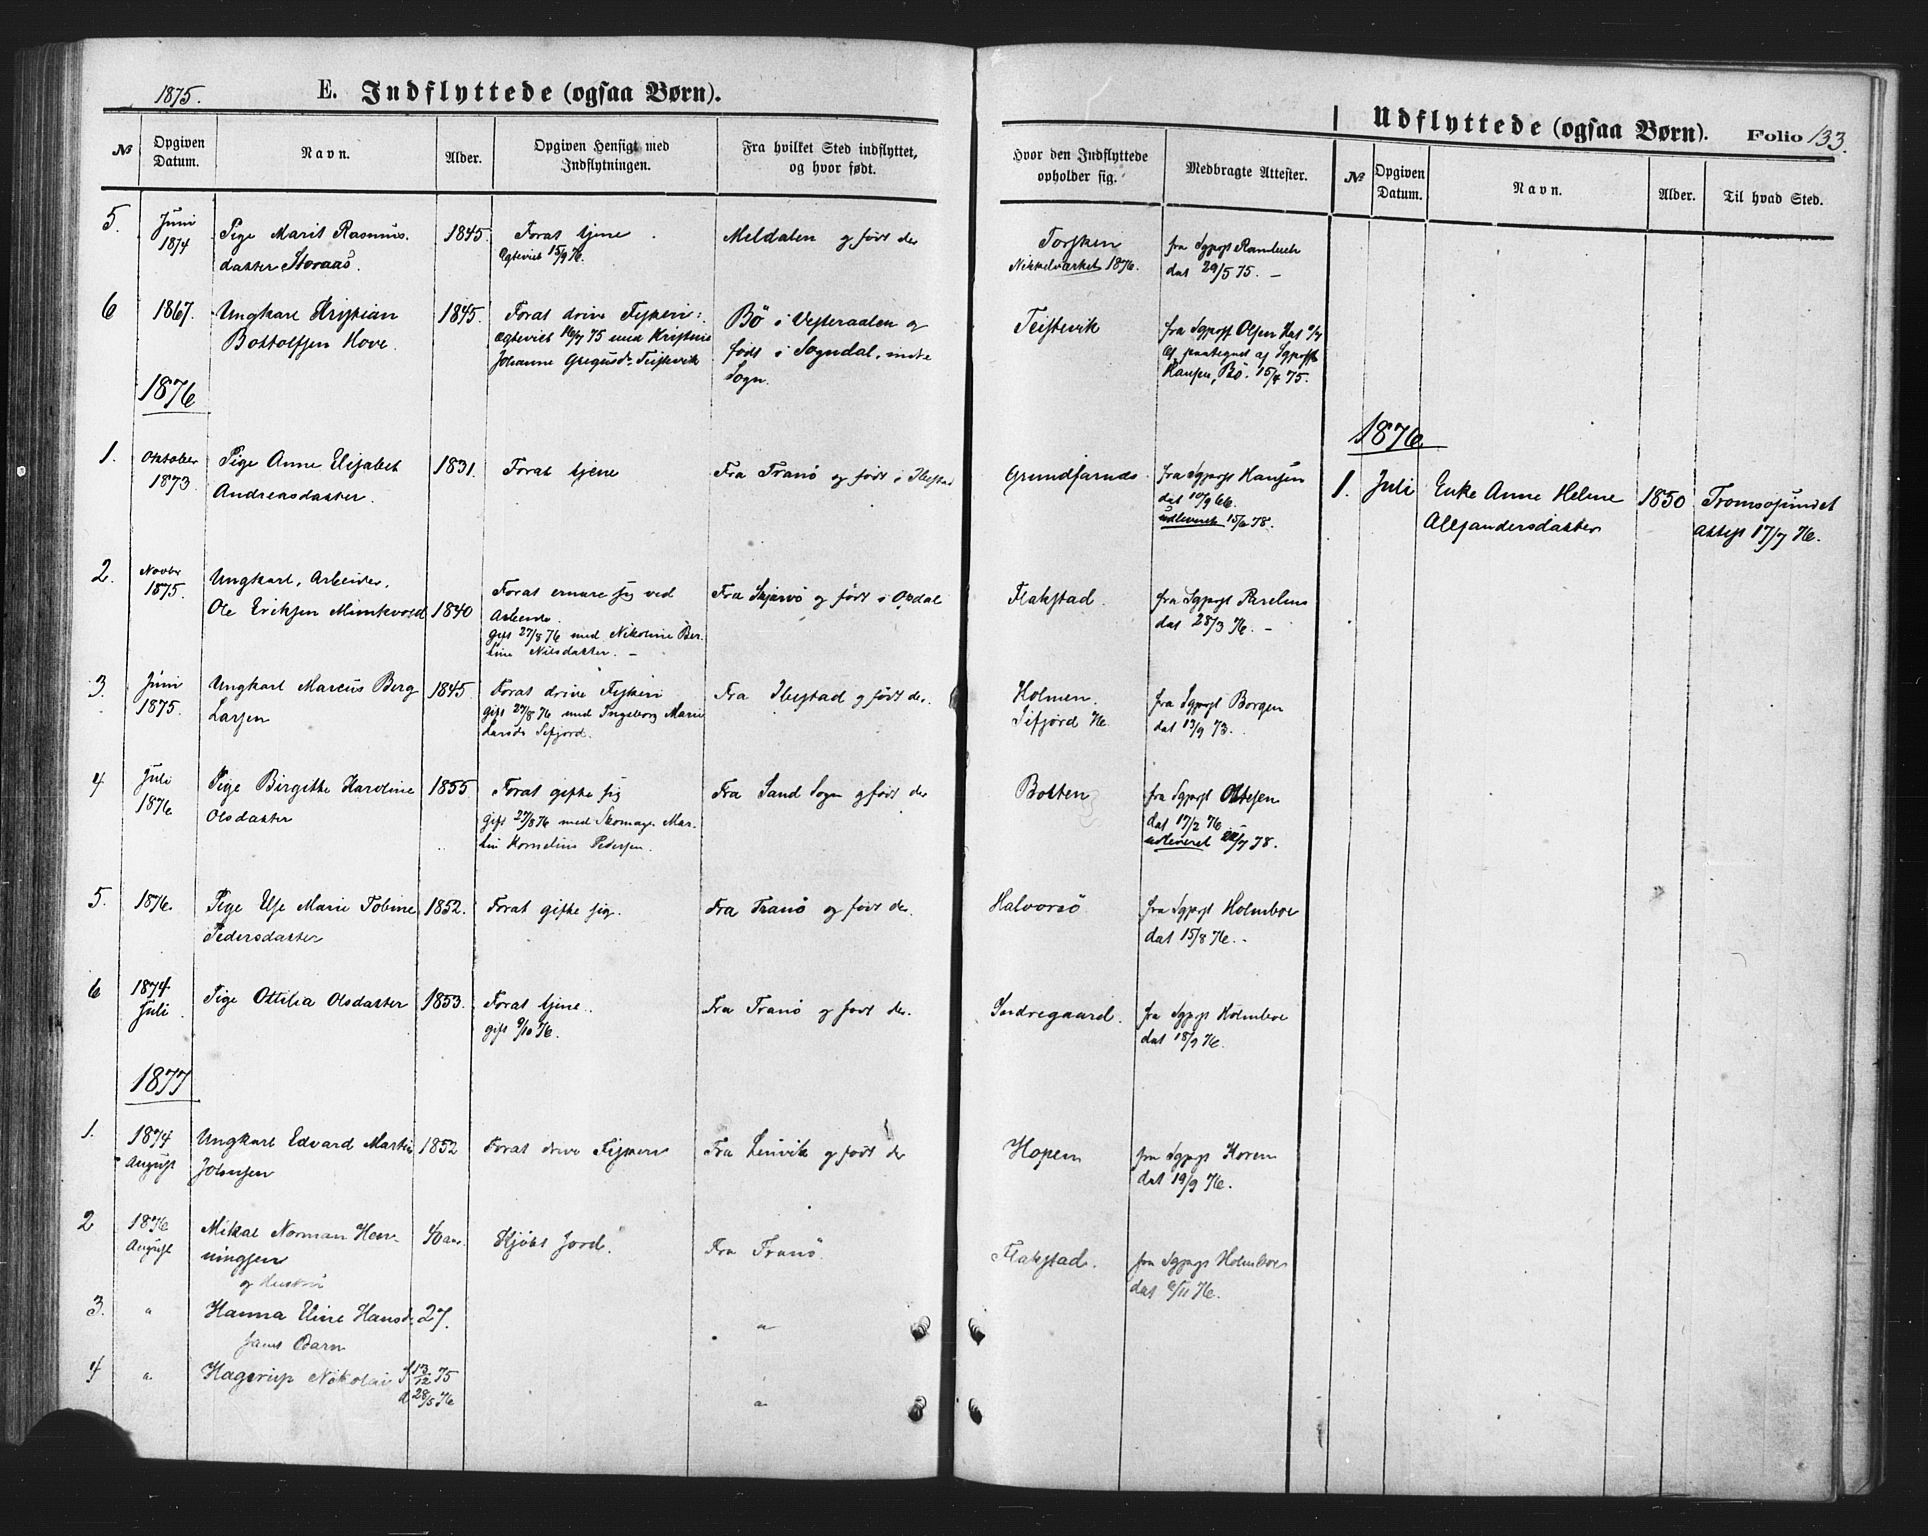 1875.
E. Indflyttede (ogsaa Børn).
Udflyttede (ogsaa Børn). Folio 133.
№ Opgiven Datum. Navn. Alder. Opgiven Hensigt med Indflytningen. Fra hvilket Sted indflyttet, og hvor født. Hvor den Indflyttede opholder sig. Medbragte Attester. № Opgiven Datum. Navn. Alder. Til hvad Sted.
5. Juni 1874 Pige Marit Rasmus- 1845. Forat tjene Meldalen og født der Torsken fra Sgpsgt
datter Storaas. Egteviet 15/9 76. Nikkelværket 1876. dat 29/5 75. –
6 1867. Ungkarl Kristian 1845. Forat drive Fiskeri: Bö i Vesteraalen og Teistevik fra Sgpgst Olsen
Bottolfsen Hove. Egteviet 16/7 75 med Kristine født i Sogndal, indre paategnet af Sgpgst
Johanne Gregusd. Teistevik Sogn. Hansen, Bö. 15/4 75.
1876
1876
1. Oktober 1873. Pige Anne Elisabet 1831. Forat tjene Fra Tranö og født i Ibestad Grundfarnæs. fra Sgpgst Hansen
Andreasdatter. dat 10/9 66.
udleveret 15/6 78.
1. Juli Enke Anne Helene 1850 Tromsösundet
Alexandersdatter attest 17/7 76.
2. Novbr 1875. Ungkarl, Arbeider, Forat ernære sig ved Fra Skjervö og født i Opdal Flakstad. fra Sgpgst Parelius
Ole Eriksen Mjmkvold 1840 Arbeide. dat 28/3 76. –
gift 27/8 76 med Nikoline Ber-
tine Nilsdatter. –
3. Juni 1875. Ungkarl Marcus Berg 1845. Forat drive Fiskeri Fra Ibestad og født der. Holmen. fra Sgpgst Borgen
Larsen gift 27/8 76 med Ingeborg Marie Sifjord 76 dat 13/9 73.
Larsd. Sifjord.
4 Juli 1876 Pige Birgitte Karoline 1855. Forat gifte sig Fra Sand Sogn og født der Botten fra Sgpgst Ottesen
Olsdatter gift 27/8 76 med Skomager Mar- dat 17/2 76
tin Kornelius Pedersen. udleveret 22/7 78.
5. 1876. Pige Else Marie Tobine 1852. Forat gifte sig. Fra Tranö og født der. Halvorsö fra Sgpgst Holmboe
Pedersdatter dat 15/8 76. –
6 1874 Juli Pige Ottilia Olsdatter 1853. Forat tjene. Fra Tranö og født der. Indregaard. fra Sgpgst Holmboe
gift 9/10 76. dat 18/9 76.
1877
1. 1874 August Ungkarl Edvard Martin 1852 Forat drive Fiskeri Fra Lenvik og født der Hopen fra Sgpgst Horen
Johnsen dat 19/9 76.
2 1876 August Mikal Norman Hen- 40 aar. Kjöbt Jord. Fra Tranö. Flakstad. fra Sgpgst Holmboe
ningsen dat 6/11 76.
og Hustru
3. " Hanna Eline Hansd. 27. "
samt Barn
4 " Hagerup Nikolai f 13/12 75 "
d. 28/5 76